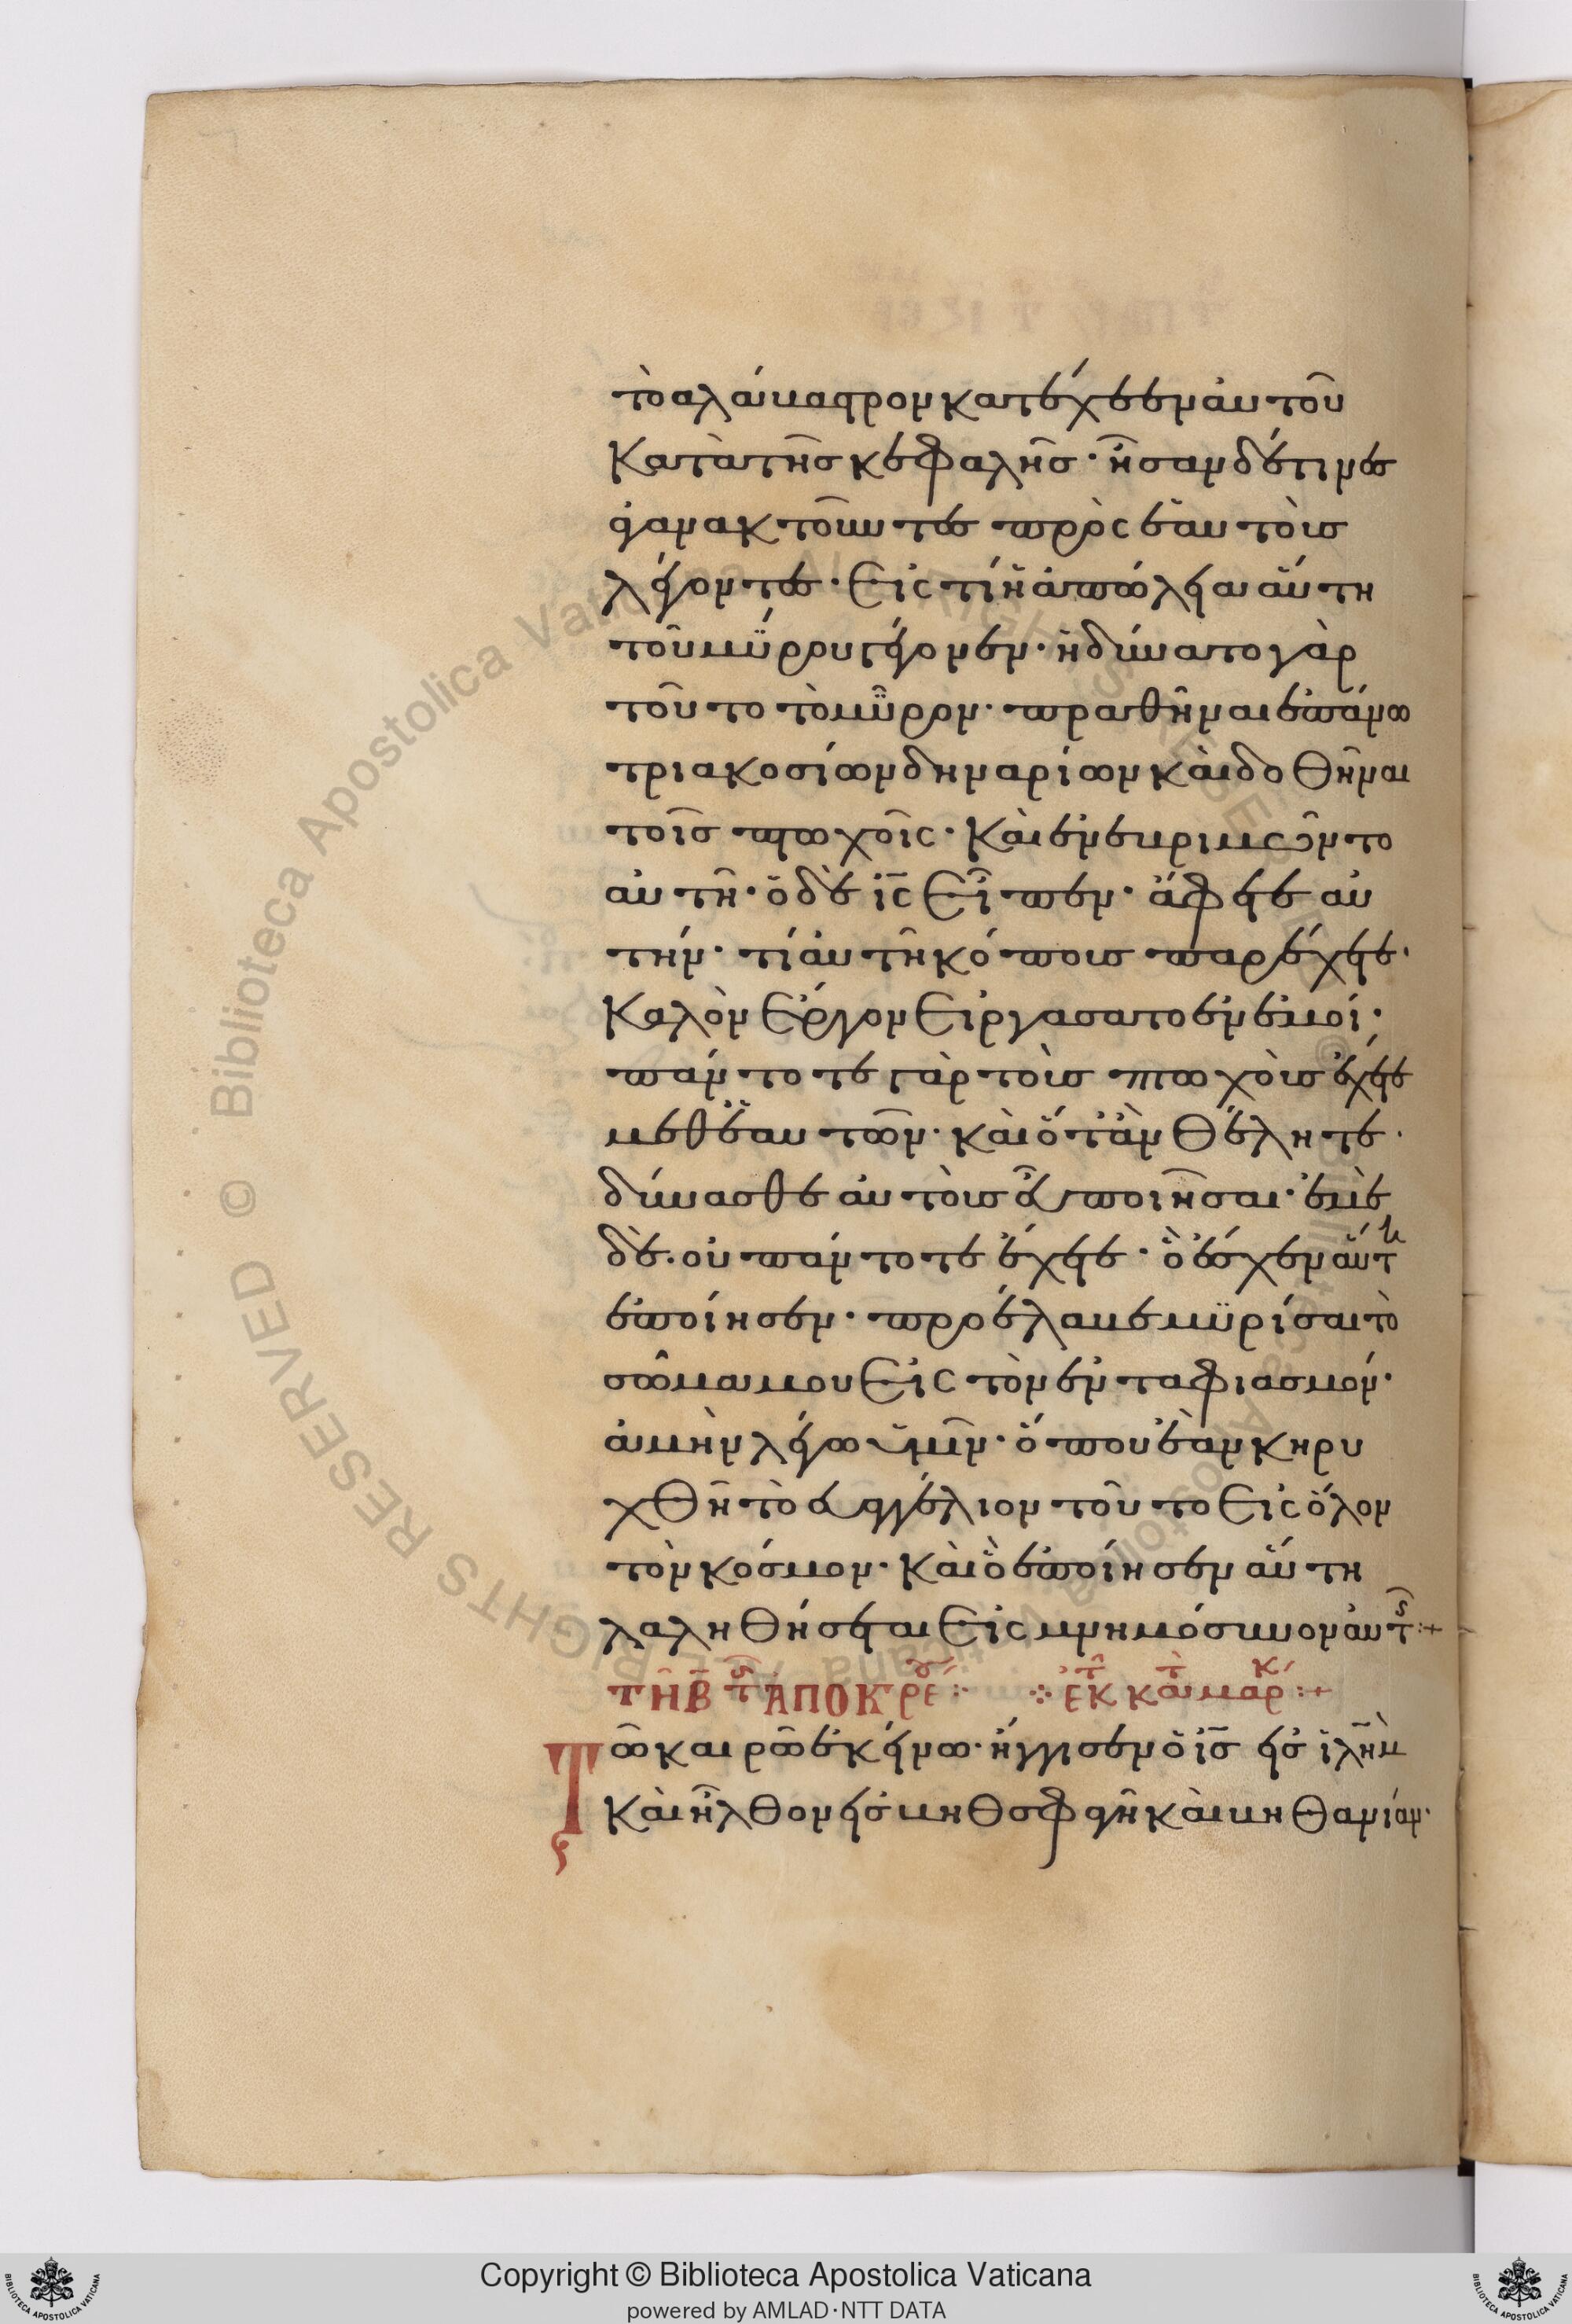 τὸ ἀλάβαστρον κατέχεεν αὐτοῦ
κατὰ τῆς κεφαλῆς· ἦσαν δέ τινες
ἀγανακτοῦντες πρὸς ἑαυτοὺς
λέγοντες· εἰς τί ἡ ἀπώλεια αὕτη
τοῦ μύρου γέγονεν· ἠδύνατο γὰρ
τοῦτο τὸ μῦρον· πραθῆναι ἐπάνω
τριακοσίων δηναρίων καὶ δοθῆναι
τοῖς πτωχοῖς· καὶ ἐνεβριμοῦντο
αὐτῇ· ὁ δὲ ις εἶπεν· ἄφετε αὐ
τήν· τί αὐτῇ κόπους παρέχετε·
καλὸν ἔργον εἰργάσατο ἐν ἐμοί·
πάντοτε γὰρ τοὺς πτωχοὺς ἔχετε
μεθ' ἑαυτῶν· καὶ ὅταν θέλητε·
δύνασθε αὐτοὺς εὖ ποιῆσαι· ἐμὲ
δὲ· οὐ πάντοτε ἔχετε· ὃ ἔσχεν αὕτη
ἐποίησεν· προέλαβε μυρίσαι τὸ
σῶμα μου εἰς τὸν ἐνταφιασμόν·
ἀμὴν λέγω ὑμῖν· ὅπου ἐὰν κηρυ
χθῇ τὸ εὐαγγέλιον τοῦτο εἰς ὅλον
τὸν κόσμον· καὶ ὃ ἐποίησεν αὕτη
λαληθήσεται εἰς μνημόσυνον αὐτῆς :+
τῇ β τῆς ἀποκρέου :· ·:· ἐκ τοῦ κατὰ μάρκ :+
Τῶ καιρῶ ἐκείνω· ἤγγισεν ὁ ις εἰς ιλημ
καὶ ἦλθον εἰς βηθσφαγῆ καὶ βηθανίαν·
Copyright © Biblioteca Apostolica Vaticana
powered by AMLAD·NTT DATA